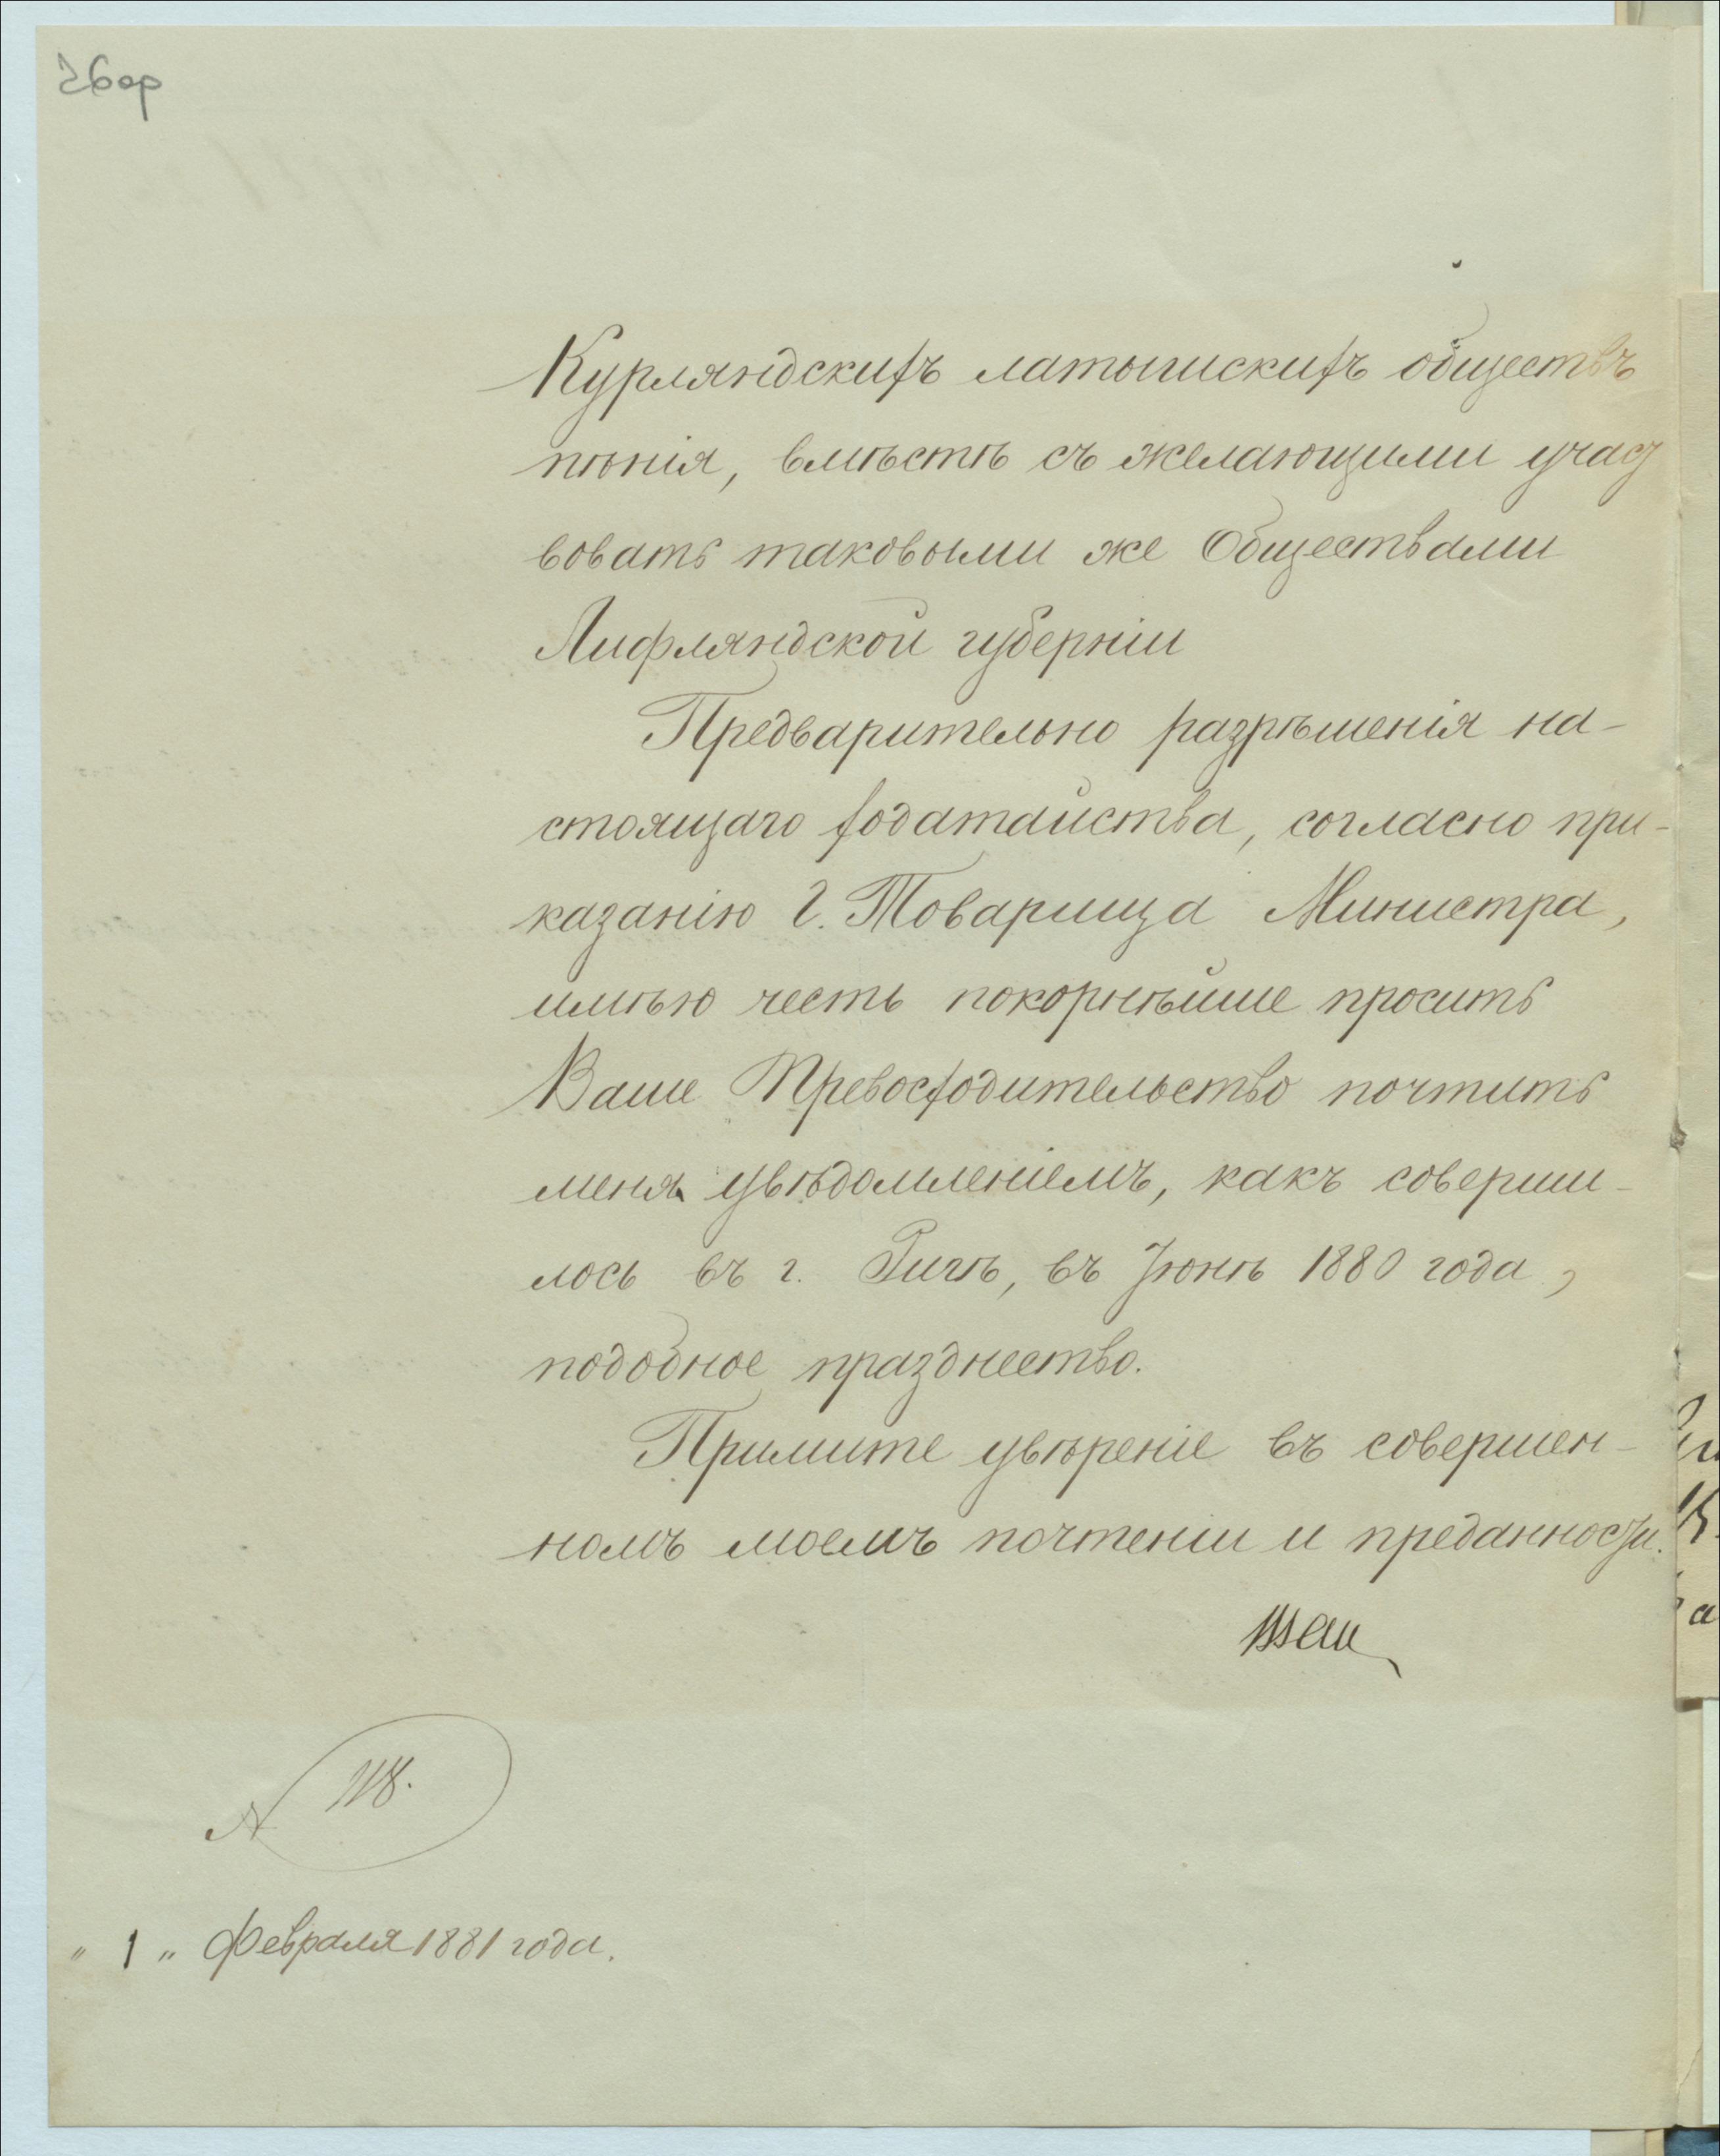 26ор
Курляндскихъ латышскихъ обществъ
пѣнія, вмѣстѣ съ желающими участ
вовать таковыми же Обществами
Лифляндской губерніи
Предварительно разрѣшенія на-
стоящаго ходатайства, согласно при-
казанію Г. Товарища Министра,
имѣю честь покорнѣйше просить
Ваше Превосходительство почтить
меня увѣдомленіемъ, какъ соверши-
лось въ г. Ригѣ, въ Іюнѣ 1880 года,
подобное празднество.
Примите увѣреніе въ совершен-
номъ моемъ почтеніи и преданности.
118.
" 1 " Февраля 1881 года.